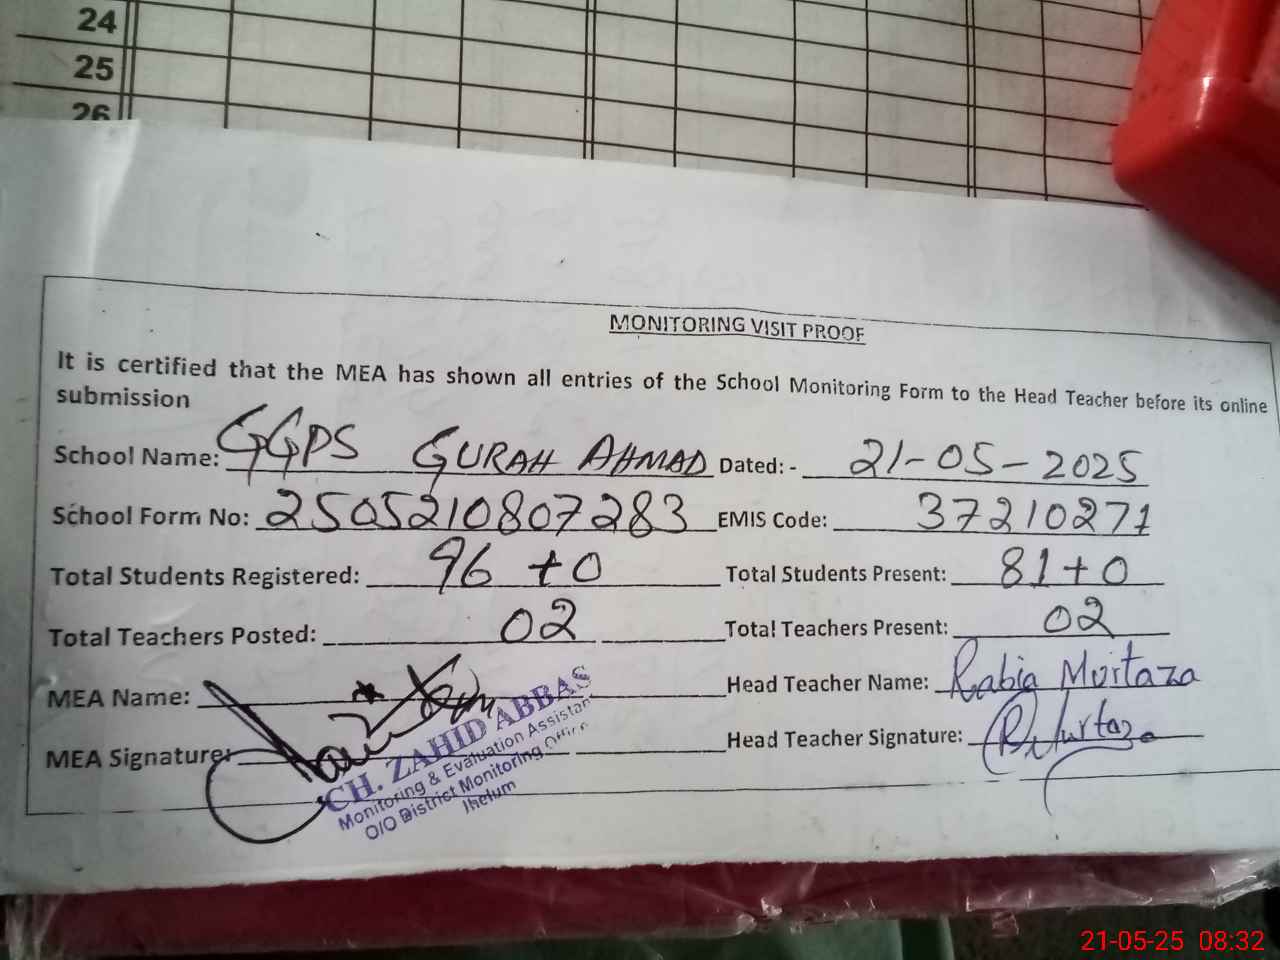 24
25
26
MONITORING VISIT PROOF
It is certified that the MEA has shown all entries of the School Monitoring Form to the Head Teacher before its online
submission
School Name: GGPS GURAH AHMAD Dated: - 21-05-2025
School Form No: 2505210807283 EMIS Code: 37210271
Total Students Registered: 96 +0 Total Students Present: 81+0
Total Teachers Posted: 02 Total Teachers Present: 02
MEA Name: Head Teacher Name: Rabia Murtaza
MEA Signature: Head Teacher Signature: R.Murtaza
CH. ZAHID ABBAS
Monitoring & Evaluation Assistant
O/O District Monitoring Office
Jhelum
21-05-25 08:32